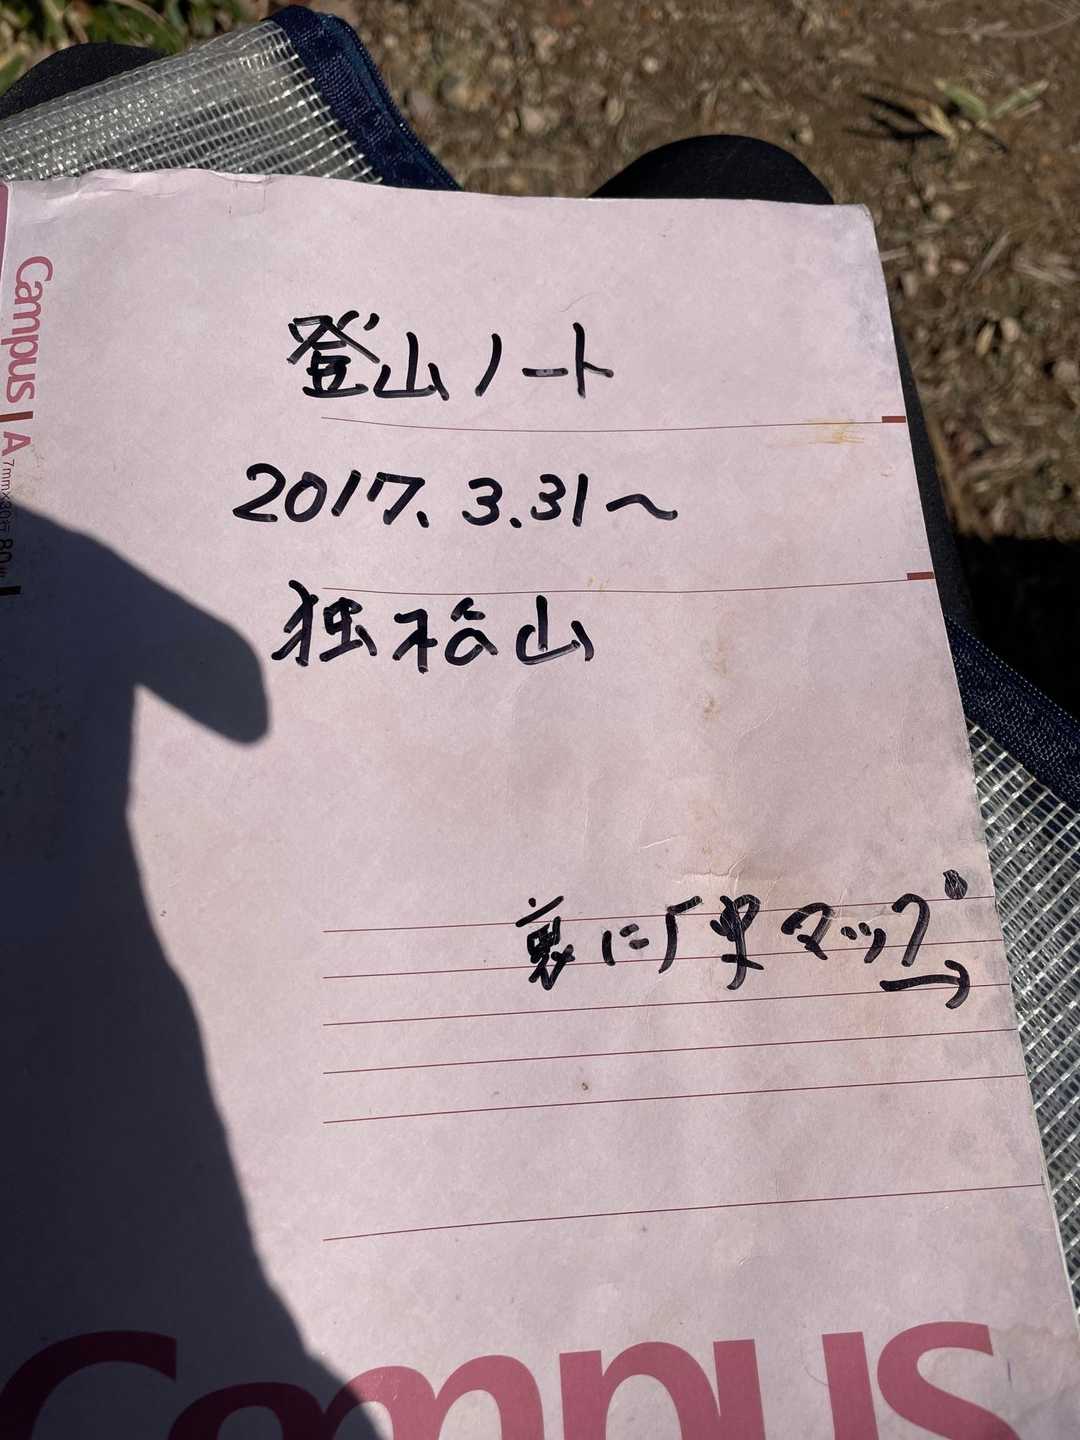 登山ノート
2017.3.31〜
独松山
裏に厂史マップ
→
Campus A
7mm×30行 80枚
Campus